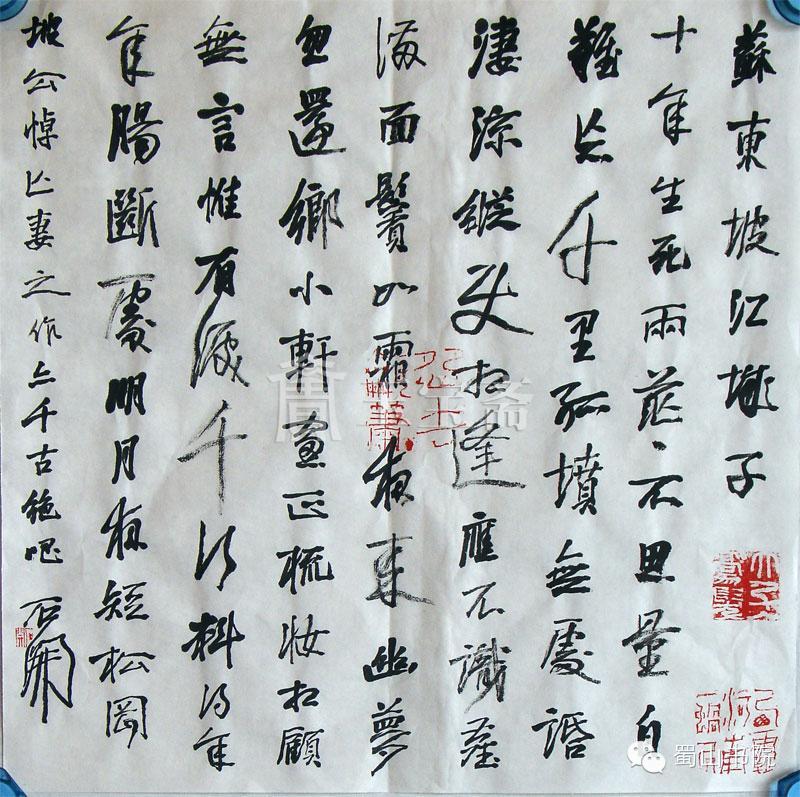 蘇東坡江城子
十年生死兩茫、不思量自
難忘千里孤墳無處話
淒涼縱使相逢應不識塵
滿面鬢如霜夜來幽夢
忽還鄉小軒窗正梳妝相顧
無言惟有淚千行料得年
年腸斷處明月夜短松岡
坡公悼亡妻之作亦千古絕唱 石開
蜀山书院